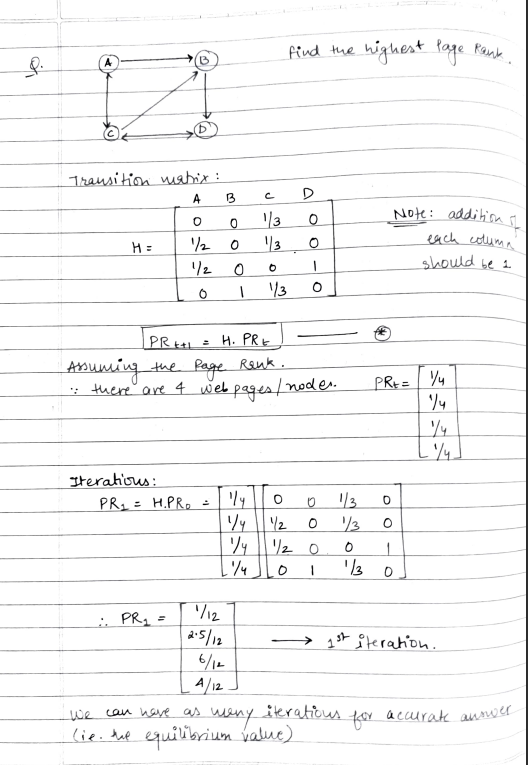 Q.
find the highest Page Rank.
A B
C D
Transition matrix:
A B C D
H = [ 0 0 1/3 0
1/2 0 1/3 0
1/2 0 0 1
0 1 1/3 0 ]
Note: addition of
each column
should be 1
PR t+1 = H. PR t — *
Assuming the Page Rank.
∵ there are 4 web pages/nodes. PRt = [ 1/4
1/4
1/4
1/4 ]
Iterations:
PR1 = H.PR0 = [ 1/4 ] [ 0 0 1/3 0
1/4 1/2 0 1/3 0
1/4 1/2 0 0 1
1/4 0 1 1/3 0 ]
∴ PR1 = [ 1/12
2.5/12 → 1st iteration.
6/12
4/12 ]
We can have as many iterations for accurate answer
(i.e. the equilibrium value)